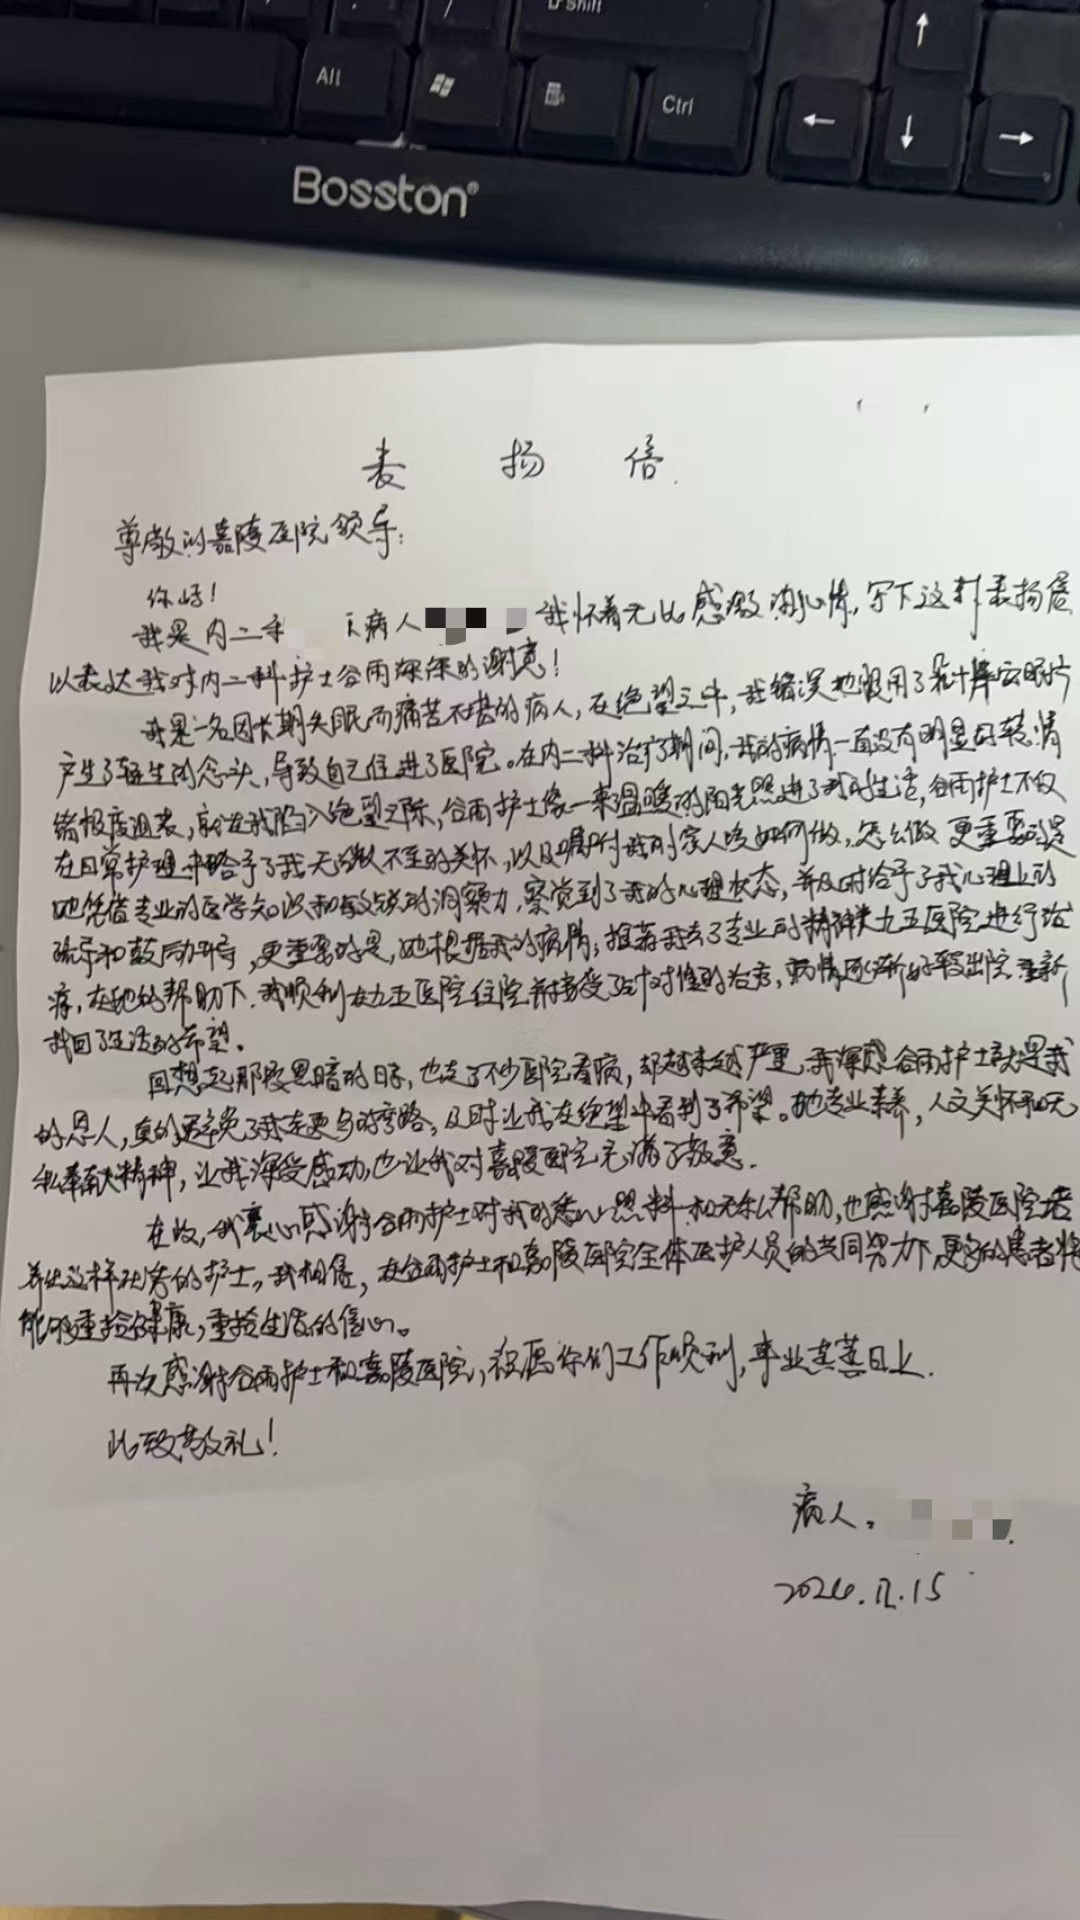 Shift
Alt
Ctrl
Bosston®
表 扬 信
尊敬的嘉陵医院领导：
你好！
我是内二科 病人 我怀着无比感激的心情，写下这封表扬信
以表达我对内二科护士谷雨深深的谢意！
我是一名因长期失眠而痛苦不堪的病人，在绝望之中，我错误地服用了几十片安眠片
产生了轻生的念头，导致自己住进了医院。在内二科治疗期间，我的病情一直没有明显好转，情
绪极度沮丧，就在我陷入绝望之际，谷雨护士像一束温暖的阳光照进了我的生活，谷雨护士不仅
在日常护理中给予了我无微不至的关怀，以及嘱咐我的家人该如何做，怎么做 更重要的是
她凭借专业的医学知识和敏锐的洞察力，察觉到了我的心理状态，并及时给予了我心理上的
疏导和鼓励 ，更重要的是，她根据我的病情，推荐我去了专业的精神类九五医院进行治
疗，在她的帮助下，我顺利在九五医院住院并接受了针对性的治疗，病情逐渐好转出院，重新
找回了生活的希望。
回想起那段黑暗的日子，也走了不少医院看病，却越来越严重，我深感谷雨护士就是我
的恩人，真的避免了我走更多的弯路，及时让我在绝望中看到了希望。她专业素养，人文关怀和无
私奉献精神，让我深受感动，也让我对嘉陵医院充满了敬意.
在此，我衷心感谢谷雨护士对我的悉心照料和无私帮助，也感谢嘉陵医院培
养出这样优秀的护士。我相信，在谷雨护士和嘉陵医院全体医护人员的共同努力下，更多的患者将
能够重拾健康，重拾生活的信心。
再次感谢谷雨护士和嘉陵医院，祝愿你们工作顺利，事业蒸蒸日上.
此致敬礼！
病人：
2024.12.15